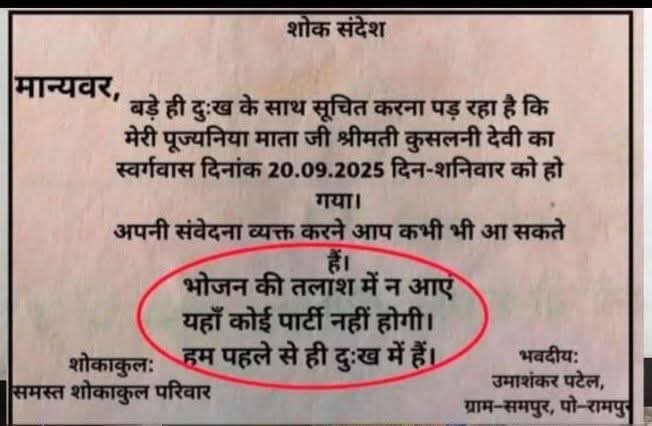 शोक संदेश
मान्यवर,
बड़े ही दुःख के साथ सूचित करना पड़ रहा है कि
मेरी पूज्यनिया माता जी श्रीमती कुसलनी देवी का
स्वर्गवास दिनांक 20.09.2025 दिन-शनिवार को हो
गया।
अपनी संवेदना व्यक्त करने आप कभी भी आ सकते
हैं।
भोजन की तलाश में न आएं
यहाँ कोई पार्टी नहीं होगी।
हम पहले से ही दुःख में हैं।
शोकाकुल:
समस्त शोकाकुल परिवार
भवदीय:
उमाशंकर पटेल,
ग्राम-समपुर, पो-रामपुर